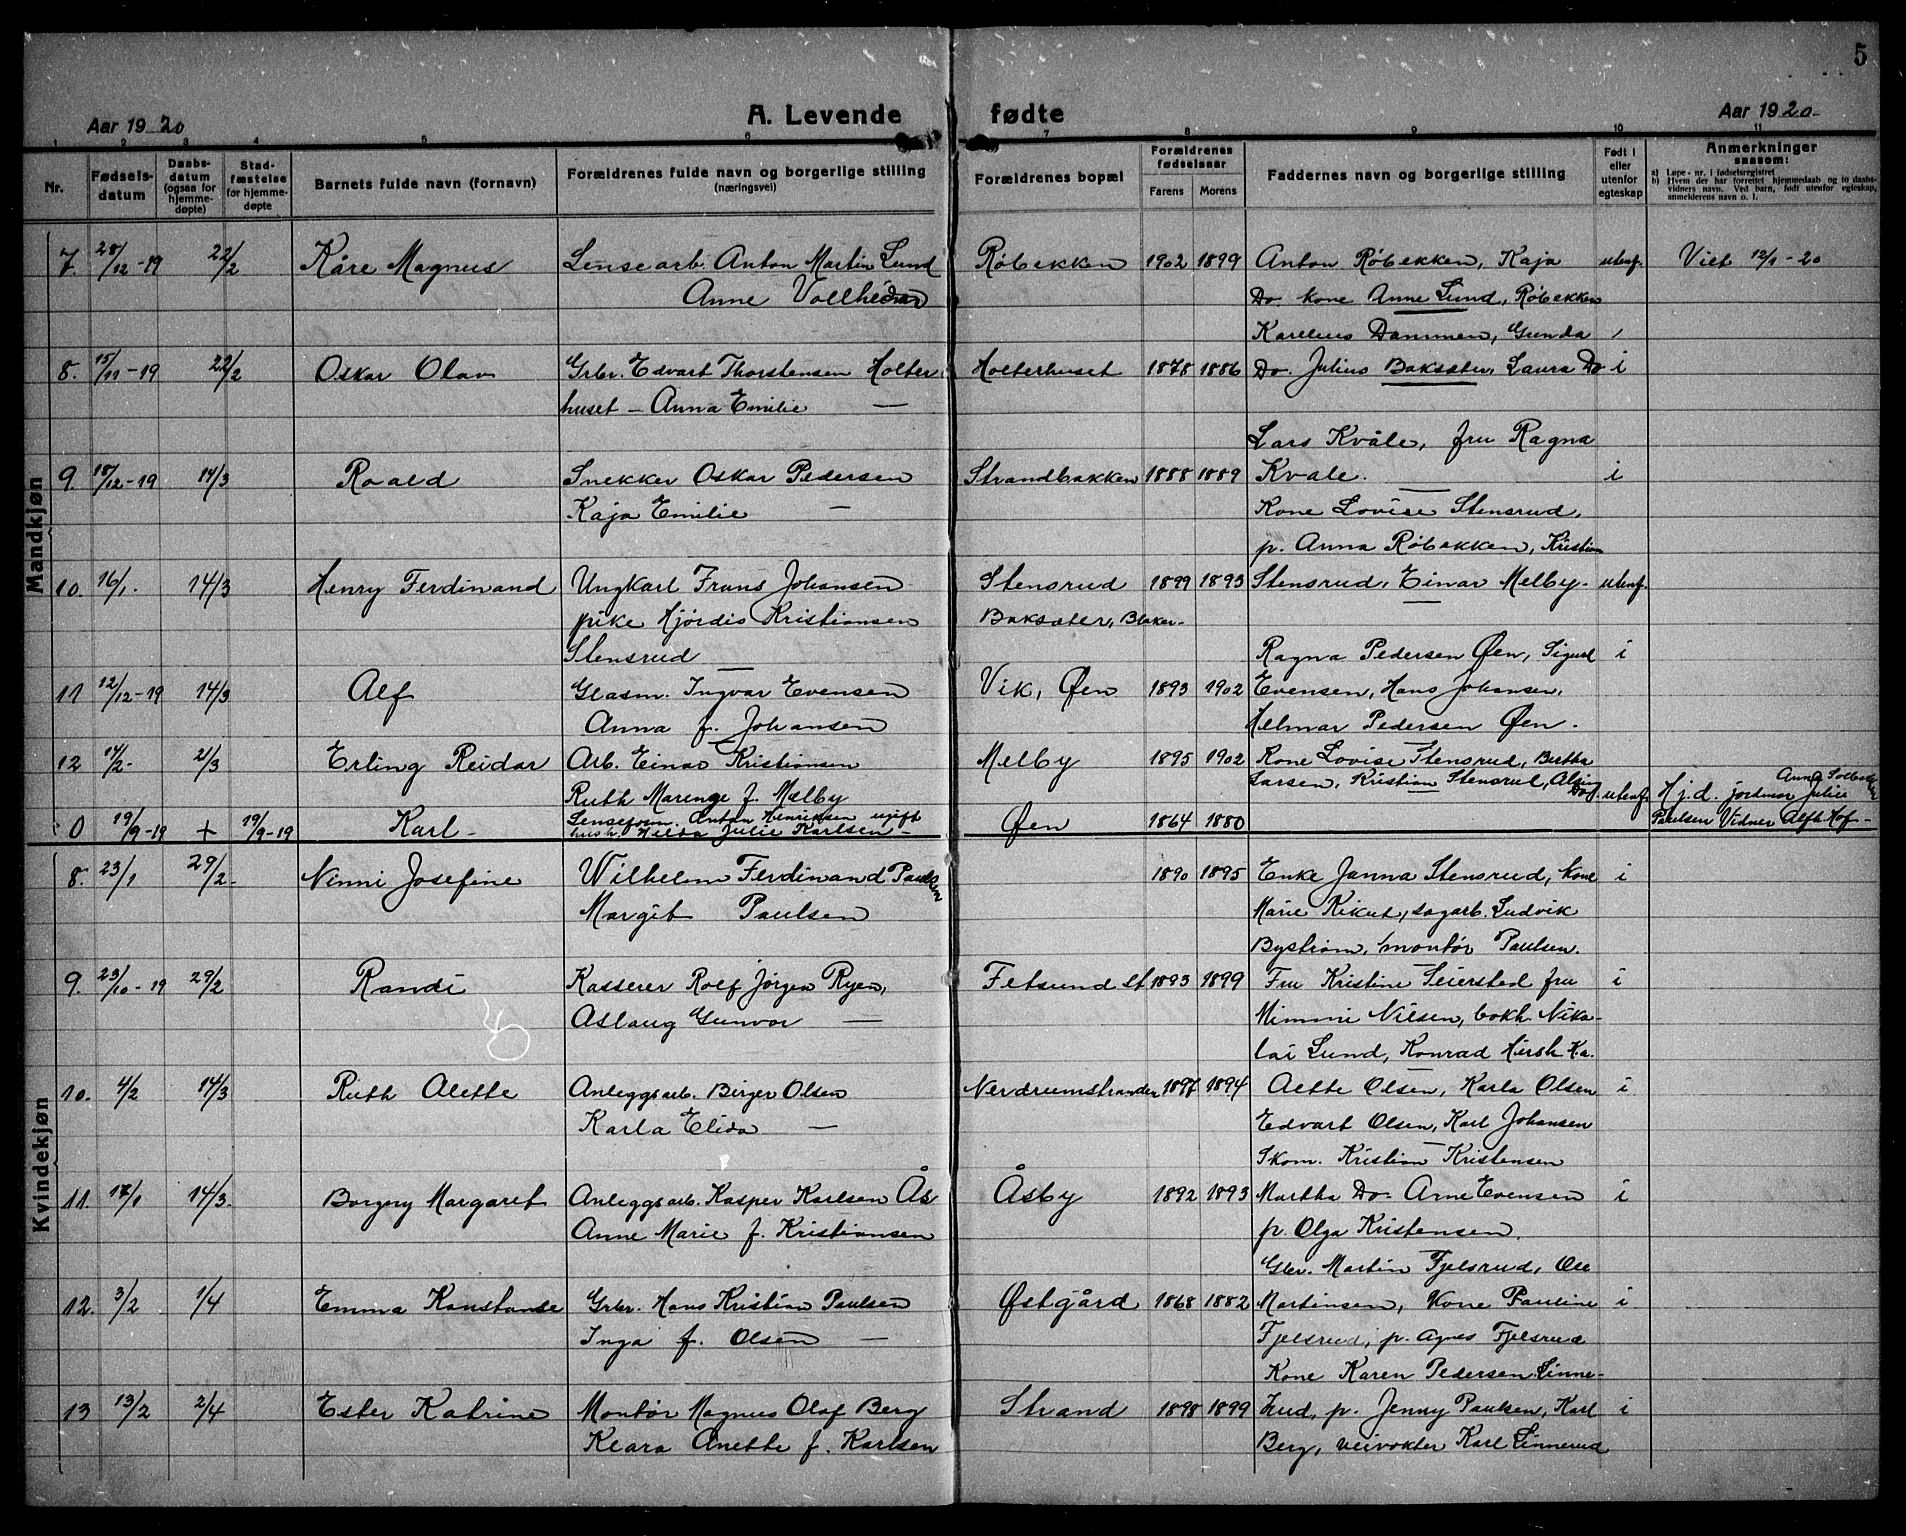 5
A. Levende fødte
Aar 1920
Aar 1920.
1 2 3 4 5 6 7 8 9 10 11
Nr.
Fødselsdatum
Daabsdatum (ogsaa for hjemmedøpte)
Stadfæstelse for hjemmedøpte
Barnets fulde navn (fornavn)
Forældrenes fulde navn og borgerlige stilling
(næringsvei)
Forældrenes bopæl
Forældrenes fødselsaar
Farens
Morens
Faddernes navn og borgerlige stilling
Født i eller utenfor egteskap
Anmerkninger
saasom:
a) Løpe-nr. i fødselsregistret
b) Hvem der har forrettet hjemmedaab og to daabsvidners navn. Ved barn, født utenfor egteskap, anmelderens navn o. l.
Mandkjøn
7. 28/12-19 22/2 Kåre Magnus Lensearb. Anton Martin Lund Røbekken 1902 1899 Anton Røbekken, Kaja utenf. Viet 12/1-20
Anne Vollheim Do. kone Anne Lund, Røbekken
Karelius Dammen, Gunda
8. 15/11-19 22/2 Oskar Olav Grbr. Edvart Thorstensen Holter Holterhuset 1878 1886 Do. Julius Baksæter, Laura Do i
huset - Anna Emilie —
Lars Kvåle, fru Ragna
9. 18/12-19 14/3 Roald Snekker Oskar Pedersen Strandbakken 1888 1889 Kvale. i
Kaja Emilie — Kone Lovise Stensrud,
p. Anna Røbekken, Kristian
10. 16/1. 14/3 Henry Ferdinand Ungkarl Frans Johansen Stensrud 1899 1893 Stensrud, Einar Melby. utenf.
pike Hjördis Kristiansen Baksæter, Blaker.
Stensrud — Ragna Pedersen Øen, Sigurd i
11 12/12-19 14/3 Alf Glasm. Ingvar Evensen Vik, Øen 1893 1902 Evensen, Hans Johansen,
Anna f. Johansen Helmar Pedersen Øen.
12 14/2- 21/3 Erling Reidar Arb. Einar Kristiansen Melby 1895 1902 Kone Lovise Stensrud, Bertha
Ruth Marenge f. Melby Larsen, Kristian Stensrud, Do. utenf. Hj.d. jordmor Julie
0 19/9-19 + 19/9-19 Karl- Lenseform. Anton Henriksen ugift Øen 1864 1880 Paulsen Vidner Alfh. Hof-
hush. Hilda Julie Karlsen - Anna
Kvindekjøn
8. 23/1 29/2- Ninni Josefine Wilhelm Ferdinand Paulsen 1890 1895 Enke Janna Stensrud, Kone i
Margit Paulsen Marie Rikut, sagarb. Ludvik
Bystrøm, montør Paulsen.
9. 23/10-19 29/2 Randi Kasserer Rolf Jørgen Ryen, Fetsund st 1893 1899 Fru Kristine Seiersted fru i
Aslaug Gunvor — Mimmi Nilsen, bokh. Niko-
lai Lund, Konrad Hirsh Ka.
10. 4/2 14/3 Ruth Alette Anleggsarb. Birger Olsen Nerdrumstranden 1897 1894 Alette Olsen, Karla Olsen i
Karla Elida — Edvart Olsen, Karl Johansen
Skom. Kristian Kristensen
11. 17/1 14/3. Borgny Margaret Anleggsarb. Kasper Karlsen Ås Åsby 1892 1893 Martha Do. Arne Evensen i
Anne Marie f. Kristiansen p. Olga Kristensen.
Gbr. Martin Fjelsrud, Ole
12. 3/2 1/4 Emma Konstanse Grbr. Hans Kristian Paulsen Østgård 1868 1882 Martinsen, Kone Pauline i
Inga f. Olsen — Fjelsrud, p. Agnes Fjelsrud
Kone Karen Pedersen Linne-
13 13/2 2/4 Ester Katrine Montør Magnus Olaf Berg Strand 1898 1899 rud, p. Jenny Paulsen, Karl i
Klara Anette f. Karlsen Berg, veivokter Karl Linnerud